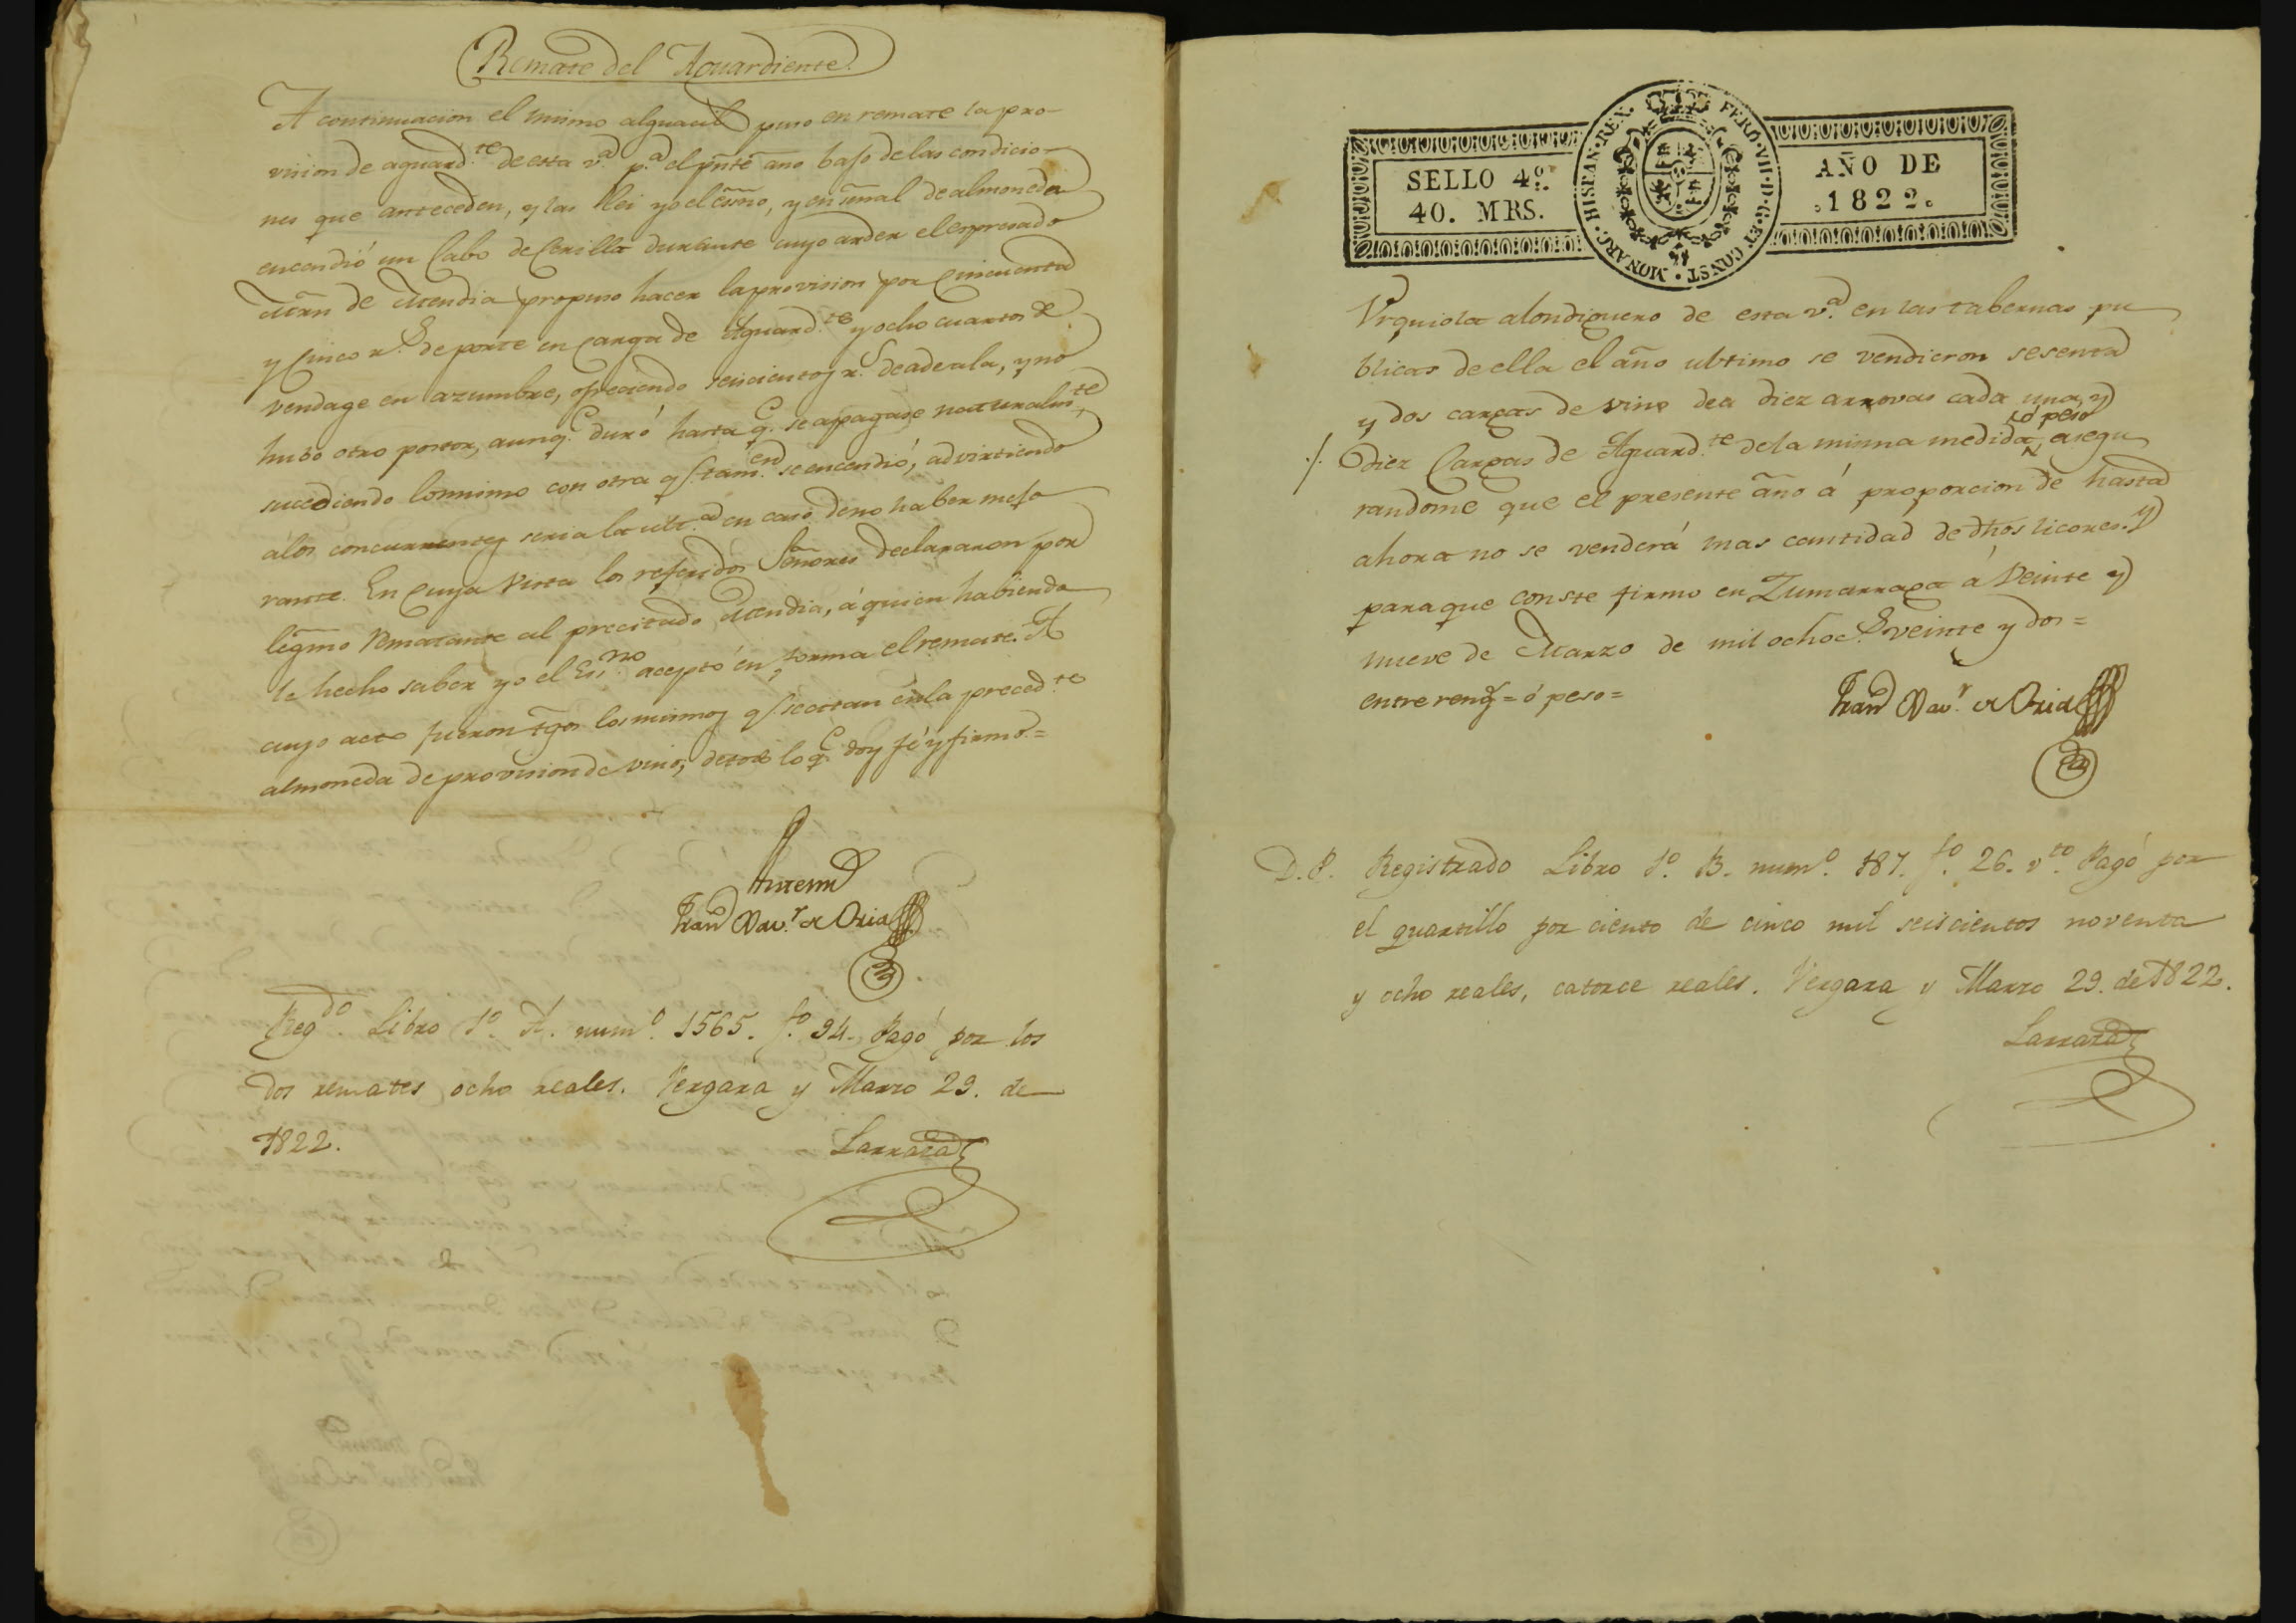 Remate del Aguardiente.
A continuacion el mismo alguacil puso en remate la pro-
vision de aguard.te de esta v.a p.a el pñte año bajo de las condicio-
nes que anteceden, y las lei yo el Esño, y en señal de almoneda
encendió un Cabo de Cerilla durante cuyo arder el espresado
de Atendia propuso hacer la provision por Cincuenta
y Cinco r.s de porte en Carga de Aguard.te y ocho cuartos de
vendage en azumbre, ofreciendo seiscientos r.s de adeala, y no
hubo otro postor, aunq.e duró hasta q.e se apagase naturalm.te
sucediendo lo mismo con otra q.e tam.en se encendió, advirtiendo
á los concurrentes seria la ult.a en caso de no haber mejo
rante. En Cuya Vista los referidos Señores declararon por
legmo Rematante al precitado Atendia, á quien habiendo
le hecho saber yo el Es.no aceptó en forma el remate. A
cuyo acto fueron tgos los mismos q.e se citan en la preced.te
almoneda de provision de vino, de todo lo q.e doy fé y firmo=
Antemi
Fran.co Xav.r de Oria
Reg.do Libro 1.o A. num.o 1565. f.o 94. Pagó por los
dos remates ocho reales. Vergara y Marzo 29. de
1822. Larraza
SELLO 4.o
40. MRS.
HISPAN·REX· FERD·VII·D·G·ET·CONST·MONARC·
AÑO DE
1822.
Urquiola alondiguero de esta v.a en las tabernas pu
blicas de ella el año ultimo se vendieron sesenta
y dos cargas de vino de a diez arrovas cada una, y
ó peso
./. diez Cargas de Aguard.te de la misma medida, asegu
randome que el presente año á proporcion de hasta
ahora no se venderá mas cantidad de dhos licores. Y
para que conste firmo en Zumarraga á Veinte y
nueve de Marzo de mil ochoc.s veinte y dos=
entre reng.s = ó peso=
Fran.co Xav.r de Oria
D.P. Registrado Libro 1.o B. num.o 187. f.o 26. v.to Pagó por
el quartillo por ciento de cinco mil seiscientos noventa
y ocho reales, catorce reales. Vergara y Marzo 29. de 1822.
Larraza